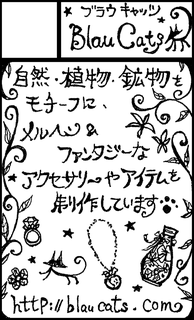 ブラウ キャッツ
Blau Cats
自然・植物・鉱物を
モチーフに、
メルヘン&
ファンタジーな
アクセサリーやアイテムを
制作しています
http://blaucats.com